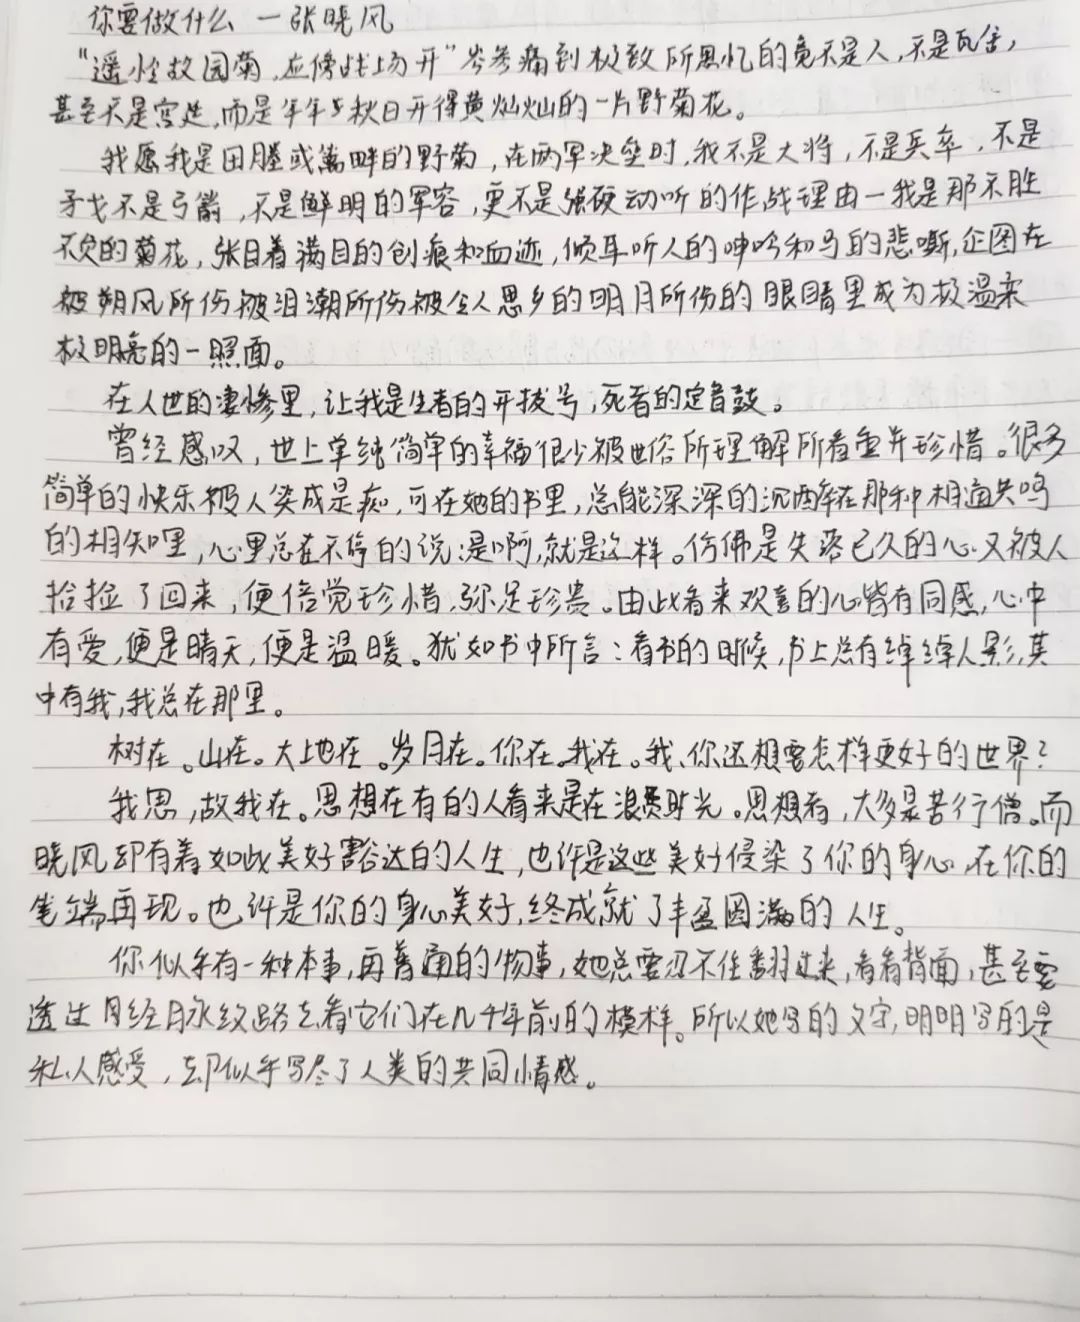 你要做什么 — 张晓风
“遥怜故园菊,应傍战场开”岑参痛到极致所思忆的竟不是人,不是瓦舍,
甚至不是宫廷,而是年年与秋日开得黄灿灿的一片野菊花。
我愿我是田塍或篱畔的野菊,在两军决垒时,我不是大将,不是兵卒,不是
矛戈不是弓箭,不是鲜明的军容,更不是强硬动听的作战理由—我是那不胜
不欠的菊花,张目着满目的创痕和血迹,倾耳听人的呻吟和马的悲嘶,企图在
被朔风所伤被泪潮所伤被令人思乡的明月所伤的眼睛里成为极温柔
极明亮的一照面。
在人世的凄惨里,让我是生者的开拔号,死者的定音鼓。
曾经感叹,世上单纯简单的幸福很少被世俗所理解所看重并珍惜。很多
简单的快乐被人笑成是痴,可在她的书里,总能深深的沉醉在那种相通共鸣
的相知里,心里总在不停的说:是啊,就是这样。仿佛是失落已久的心又被人
拾捡了回来,便倍觉珍惜,弥足珍贵。由此看来欢喜的心皆有同感,心中
有爱,便是晴天,便是温暖。犹如书中所言:看书的时候,书上总有绰绰人影,其
中有我,我总在那里。
树在。山在。大地在。岁月在。你在。我在。我、你还想要怎样更好的世界?
我思,故我在。思想在有的人看来是在浪费时光。思想者,大多是苦行僧。而
晓风却有着如此美好豁达的人生,也许是这些美好侵染了你的身心,在你的
笔端再现。也许是你的身心美好,终成就了丰盈圆满的人生。
你似乎有一种本事,再普通的物事,她总要忍不住翻过来,看看背面,甚至要
透过月经脉纹路去看它们在几千年前的模样。所以她写的文字,明明写的是
私人感受,却似乎写尽了人类的共同情感。